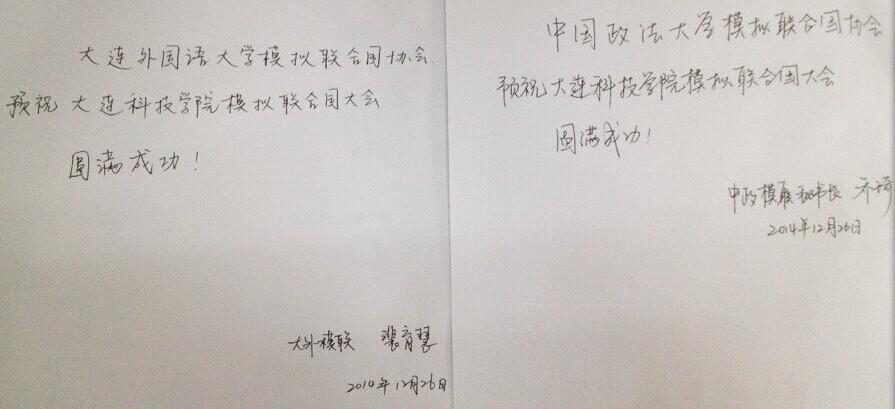 大连外国语大学模拟联合国协会
预祝大连科技学院模拟联合国大会
圆满成功！
大外模联
2014年12月26日
中国政法大学模拟联合国协会
预祝大连科技学院模拟联合国大会
圆满成功！
中政模联秘书长
2014年12月26日